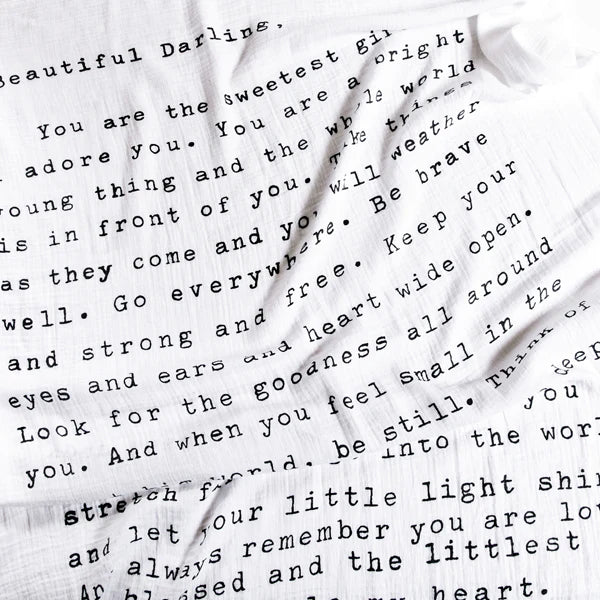 Beautiful Darling,
You are the sweetest
adore you. You are a bright
young thing and the whole world
is in front of you. Take things
as they come and you will weather
well. Go everywhere. Be brave
and strong and free. Keep your
eyes and ears and heart wide open.
Look for the goodness all around
you. And when you feel small in the
world, be still. Think of
you
stretch into the
and let your little light
always remember you are
and the littlest
heart.